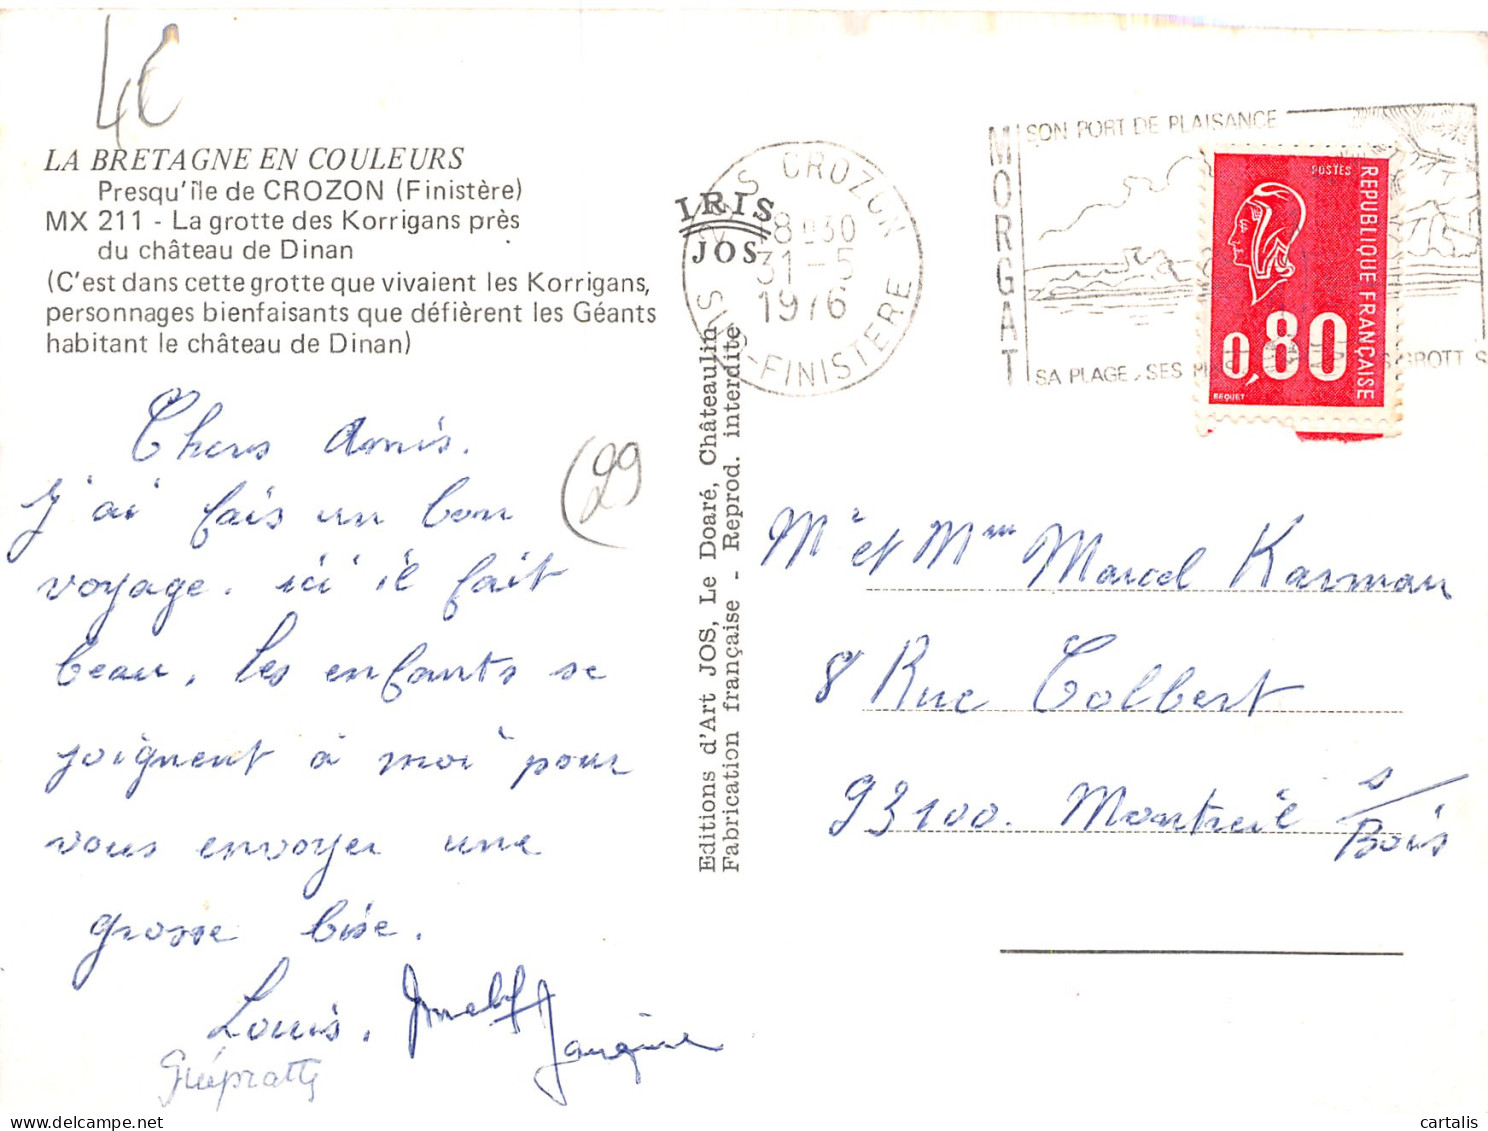 4€
LA BRETAGNE EN COULEURS
Presqu'île de CROZON (Finistère)
MX 211 - La grotte des Korrigans près
du château de Dinan
(C'est dans cette grotte que vivaient les Korrigans,
personnages bienfaisants que défièrent les Géants
habitant le château de Dinan)
Chers Amis.
J'ai fais un bon
voyage. ici il fait
beau. les enfants se
joignent à moi pour
vous envoyer une
grosse bise.
Louis.
(29
IRIS
JOS
Editions d'Art JOS, Le Doaré, Châteaulin
Fabrication française - Reprod. interdite
CROZON
18H30
31-5
1976
S/S-FINISTERE
MORGAT
SON PORT DE PLAISANCE
SA PLAGE, SES
POSTES
REPUBLIQUE FRANÇAISE
0,80
BEQUET
Mr et Mme Marcel Karman
8 Rue Colbert
93100. Montreuil s/Bois
cartalis